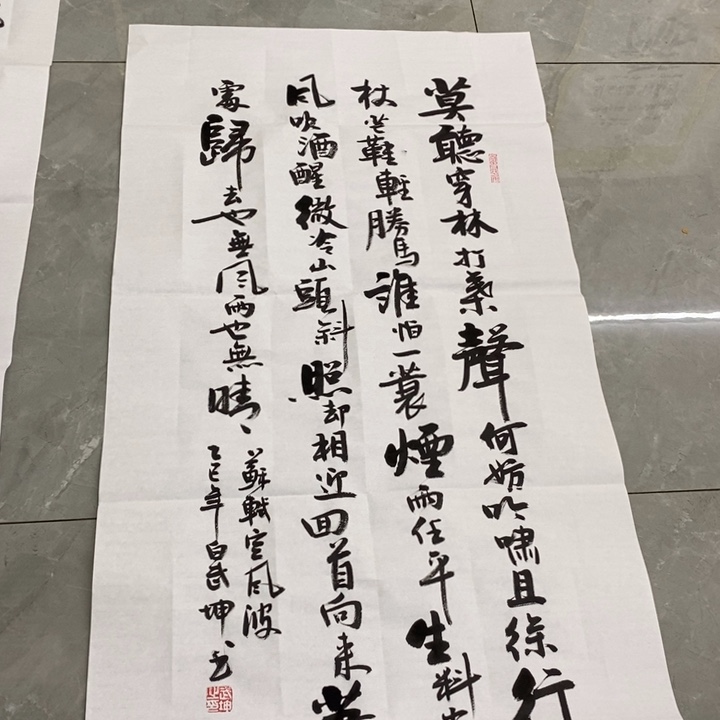 莫聽穿林打葉聲何妨吟嘯且徐行
杖芒鞋輕勝馬誰怕一蓑煙雨任平生料
风吹酒醒微冷山頭斜照却相迎回首向来
處歸去也無风雨也無晴
蘇軾定风波
乙巳年白武坤书
武坤之印